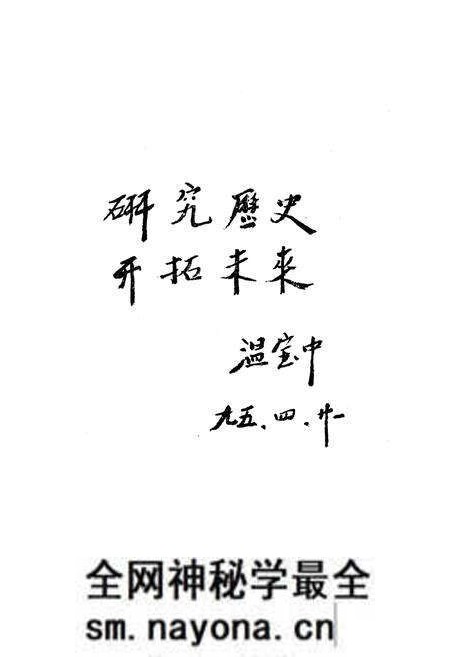 研究歷史
开拓未來
温宝中
九五.四.廿一
全网神秘学最全
sm.nayona.cn